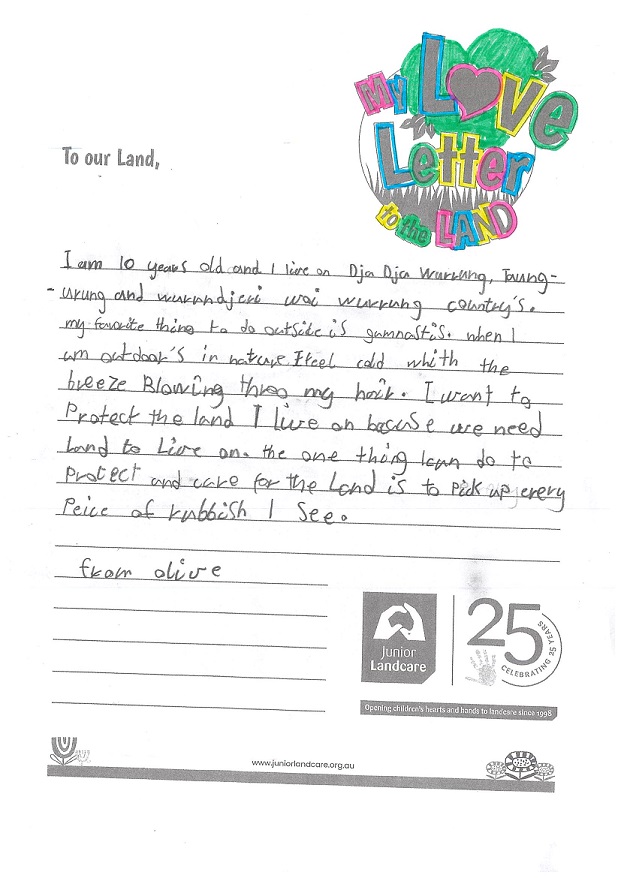 My Love
Letter
to the LAND
To our Land,
I am 10 years old and I live on Dja Dja Wurrung, Taung-
-urung and wurundjeri woi wurrung country's.
my favorite thing to do outside is gymnastis. when I
am outdoor's in nature I feel cold whith the
breeze Blowing throo my hair. I want to
Protect the land I live on bacuse we need
Land to Live on. the one thing I can do to
Protect and care for the Land is to pick up every
Peice of rubbish I see.
from olive
Junior
Landcare
25
CELEBRATING 25 YEARS
Opening children's hearts and hands to landcare since 1998
www.juniorlandcare.org.au